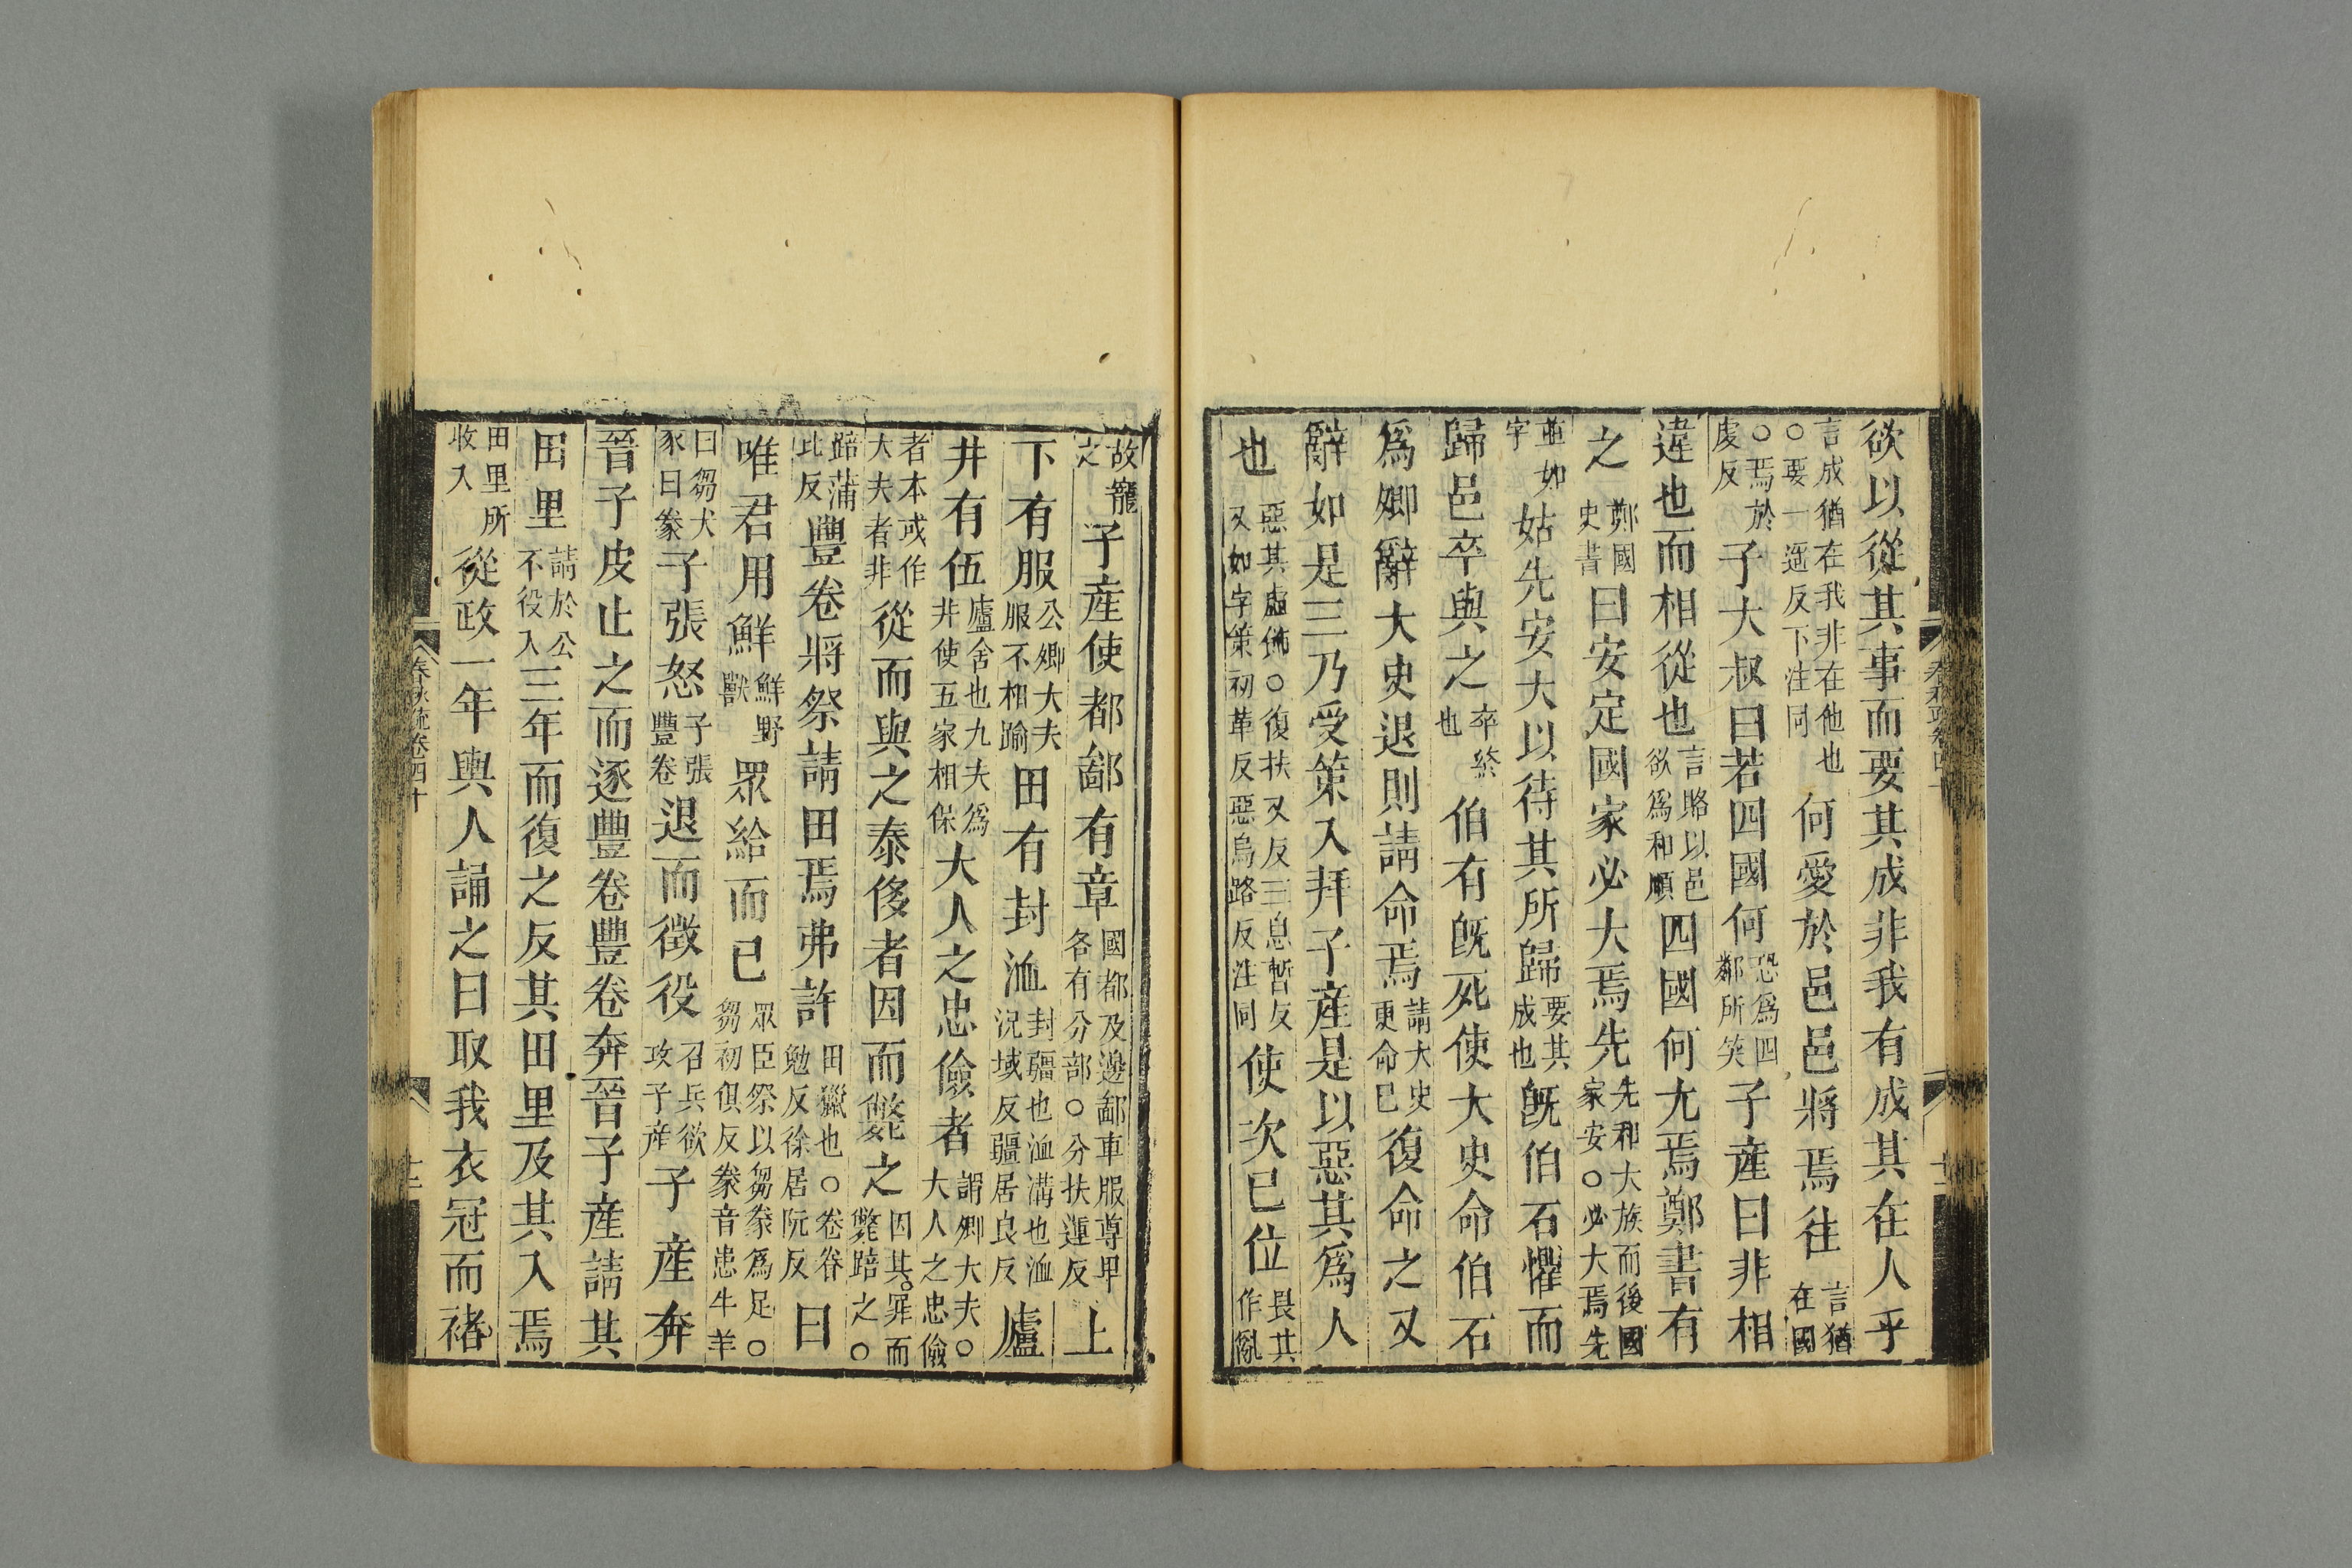 欲以從其事而要其成非我有成其在人乎
言成猶在我非在他也○要一遥反下注同何愛於邑邑將焉往言猶在國
○焉於虔反子大叔曰若四國何恐爲四鄰所笑子產曰非相
違也而相從也言賂以邑欲爲和順四國何尤焉鄭書有
之鄭國史書曰安定國家必大焉先先和大族而後國家安○必大焉先
並如字姑先安大以待其所歸要其成也既伯石懼而
歸邑卒與之卒終也伯有既死使大史命伯石
爲卿辭大史退則請命焉請大史更命已復命之又
辭如是三乃受策入拜子產是以惡其爲人
也惡其虛飾○復扶又反三息暫反又如字策初革反惡烏路反注同使次已位畏其作亂
故寵之子產使都鄙有章國都及邊鄙車服尊卑各有分部○分扶運反上
下有服公卿大夫服不相踰田有封洫封疆也洫溝也洫況域反疆居良反廬
井有伍廬舍也九夫爲井使五家相保大人之忠儉者謂卿大夫○大人之忠儉
者本或作大夫者非從而與之泰侈者因而斃之因其罪而斃踣之○
踣蒲北反豐卷將祭請田焉弗許田獵也○卷眷勉反徐居阮反曰
唯君用鮮鮮野獸眾給而已眾臣祭以芻豢爲足○芻初俱反豢音患牛羊
曰芻犬豕曰豢子張怒子張豐卷退而徵役召兵欲攻子產子產奔
晉子皮止之而逐豐卷豐卷奔晉子產請其
田里請於公不役入三年而復之反其田里及其入焉
田里所收入從政一年輿人誦之曰取我衣冠而褚
春秋疏卷四十